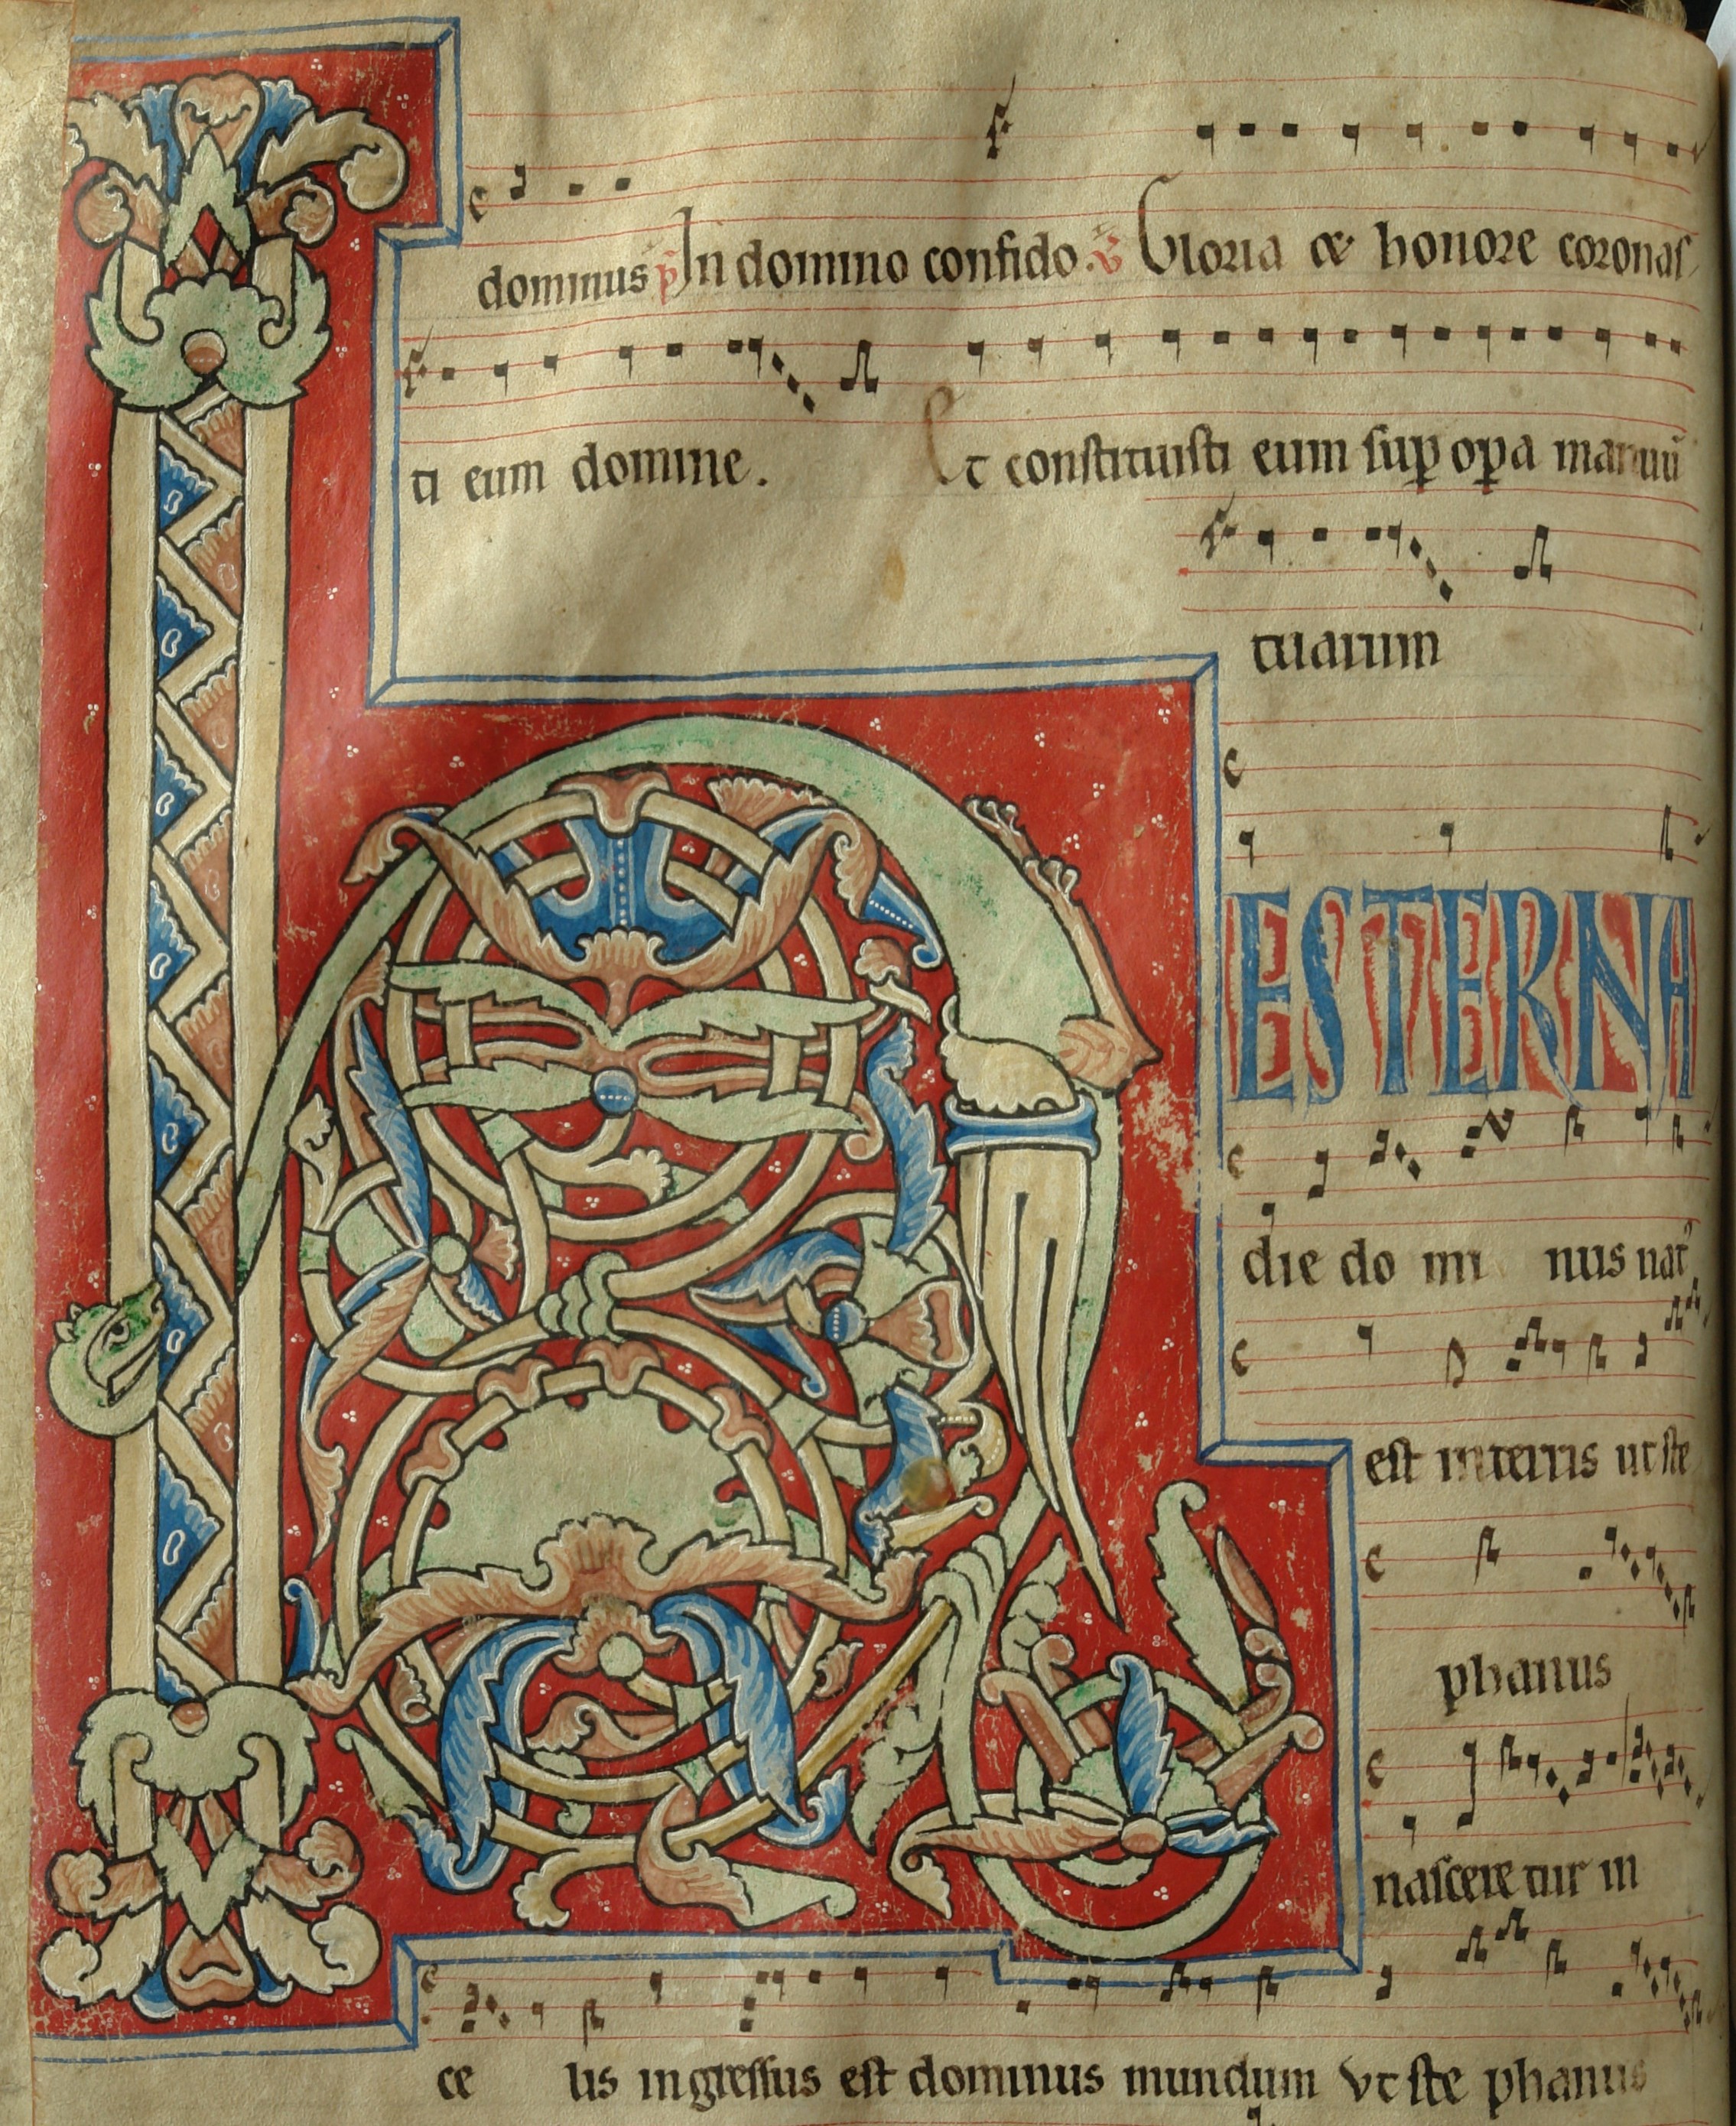 dominus p̄ In domino confido. v̄ Gloria et honore coronas
ti eum domine. Et constituisti eum sup̱ op̱a manuū
tuarum
HESTERNA
die do mi nus nat᾽
est in terris ut ste
phanus
nascere tur in
ce lis ingressus est dominus mundum Vt ste phanus